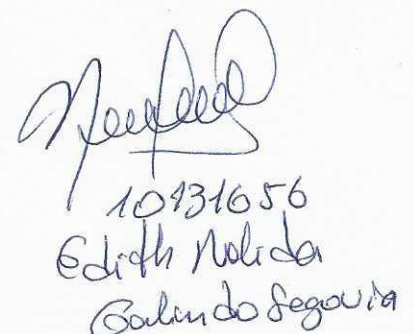 10131656
Edith Nolida
Galindo Segovia